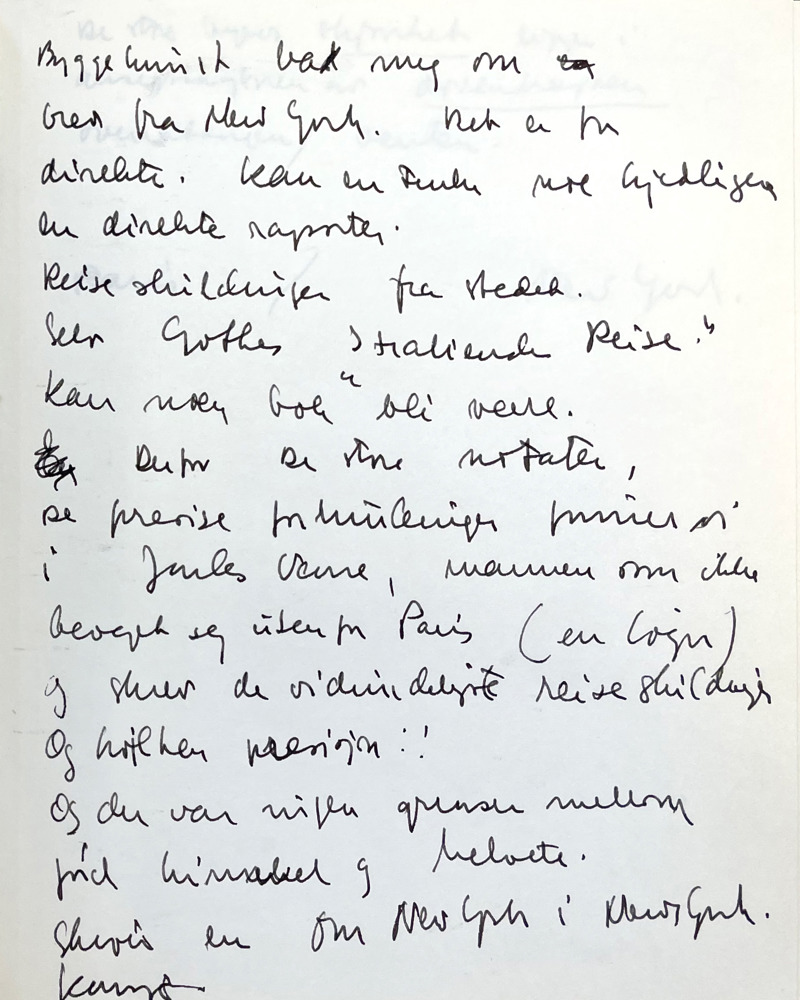 Byggekunst bad meg om
brev fra New York. Det er for
direkte. Kan en tenke noe kjedligere
en direkte raporter.
Reiseskildringer fra stedet.
Selv Gothes Italienische Reise."
Kan noen bok " bli verre.
Derfor De store notater,
De presise forklaringer finner vi
i Jules Verne, mannen som ikke
beveget seg utenfor Paris (en løgn)
og skrev de vidunderligste reiseskildringer
Og hvilken presisjon !!
Og der var ingen grenser mellom
jord himmel og helvete.
Skrive en om New York i New York.